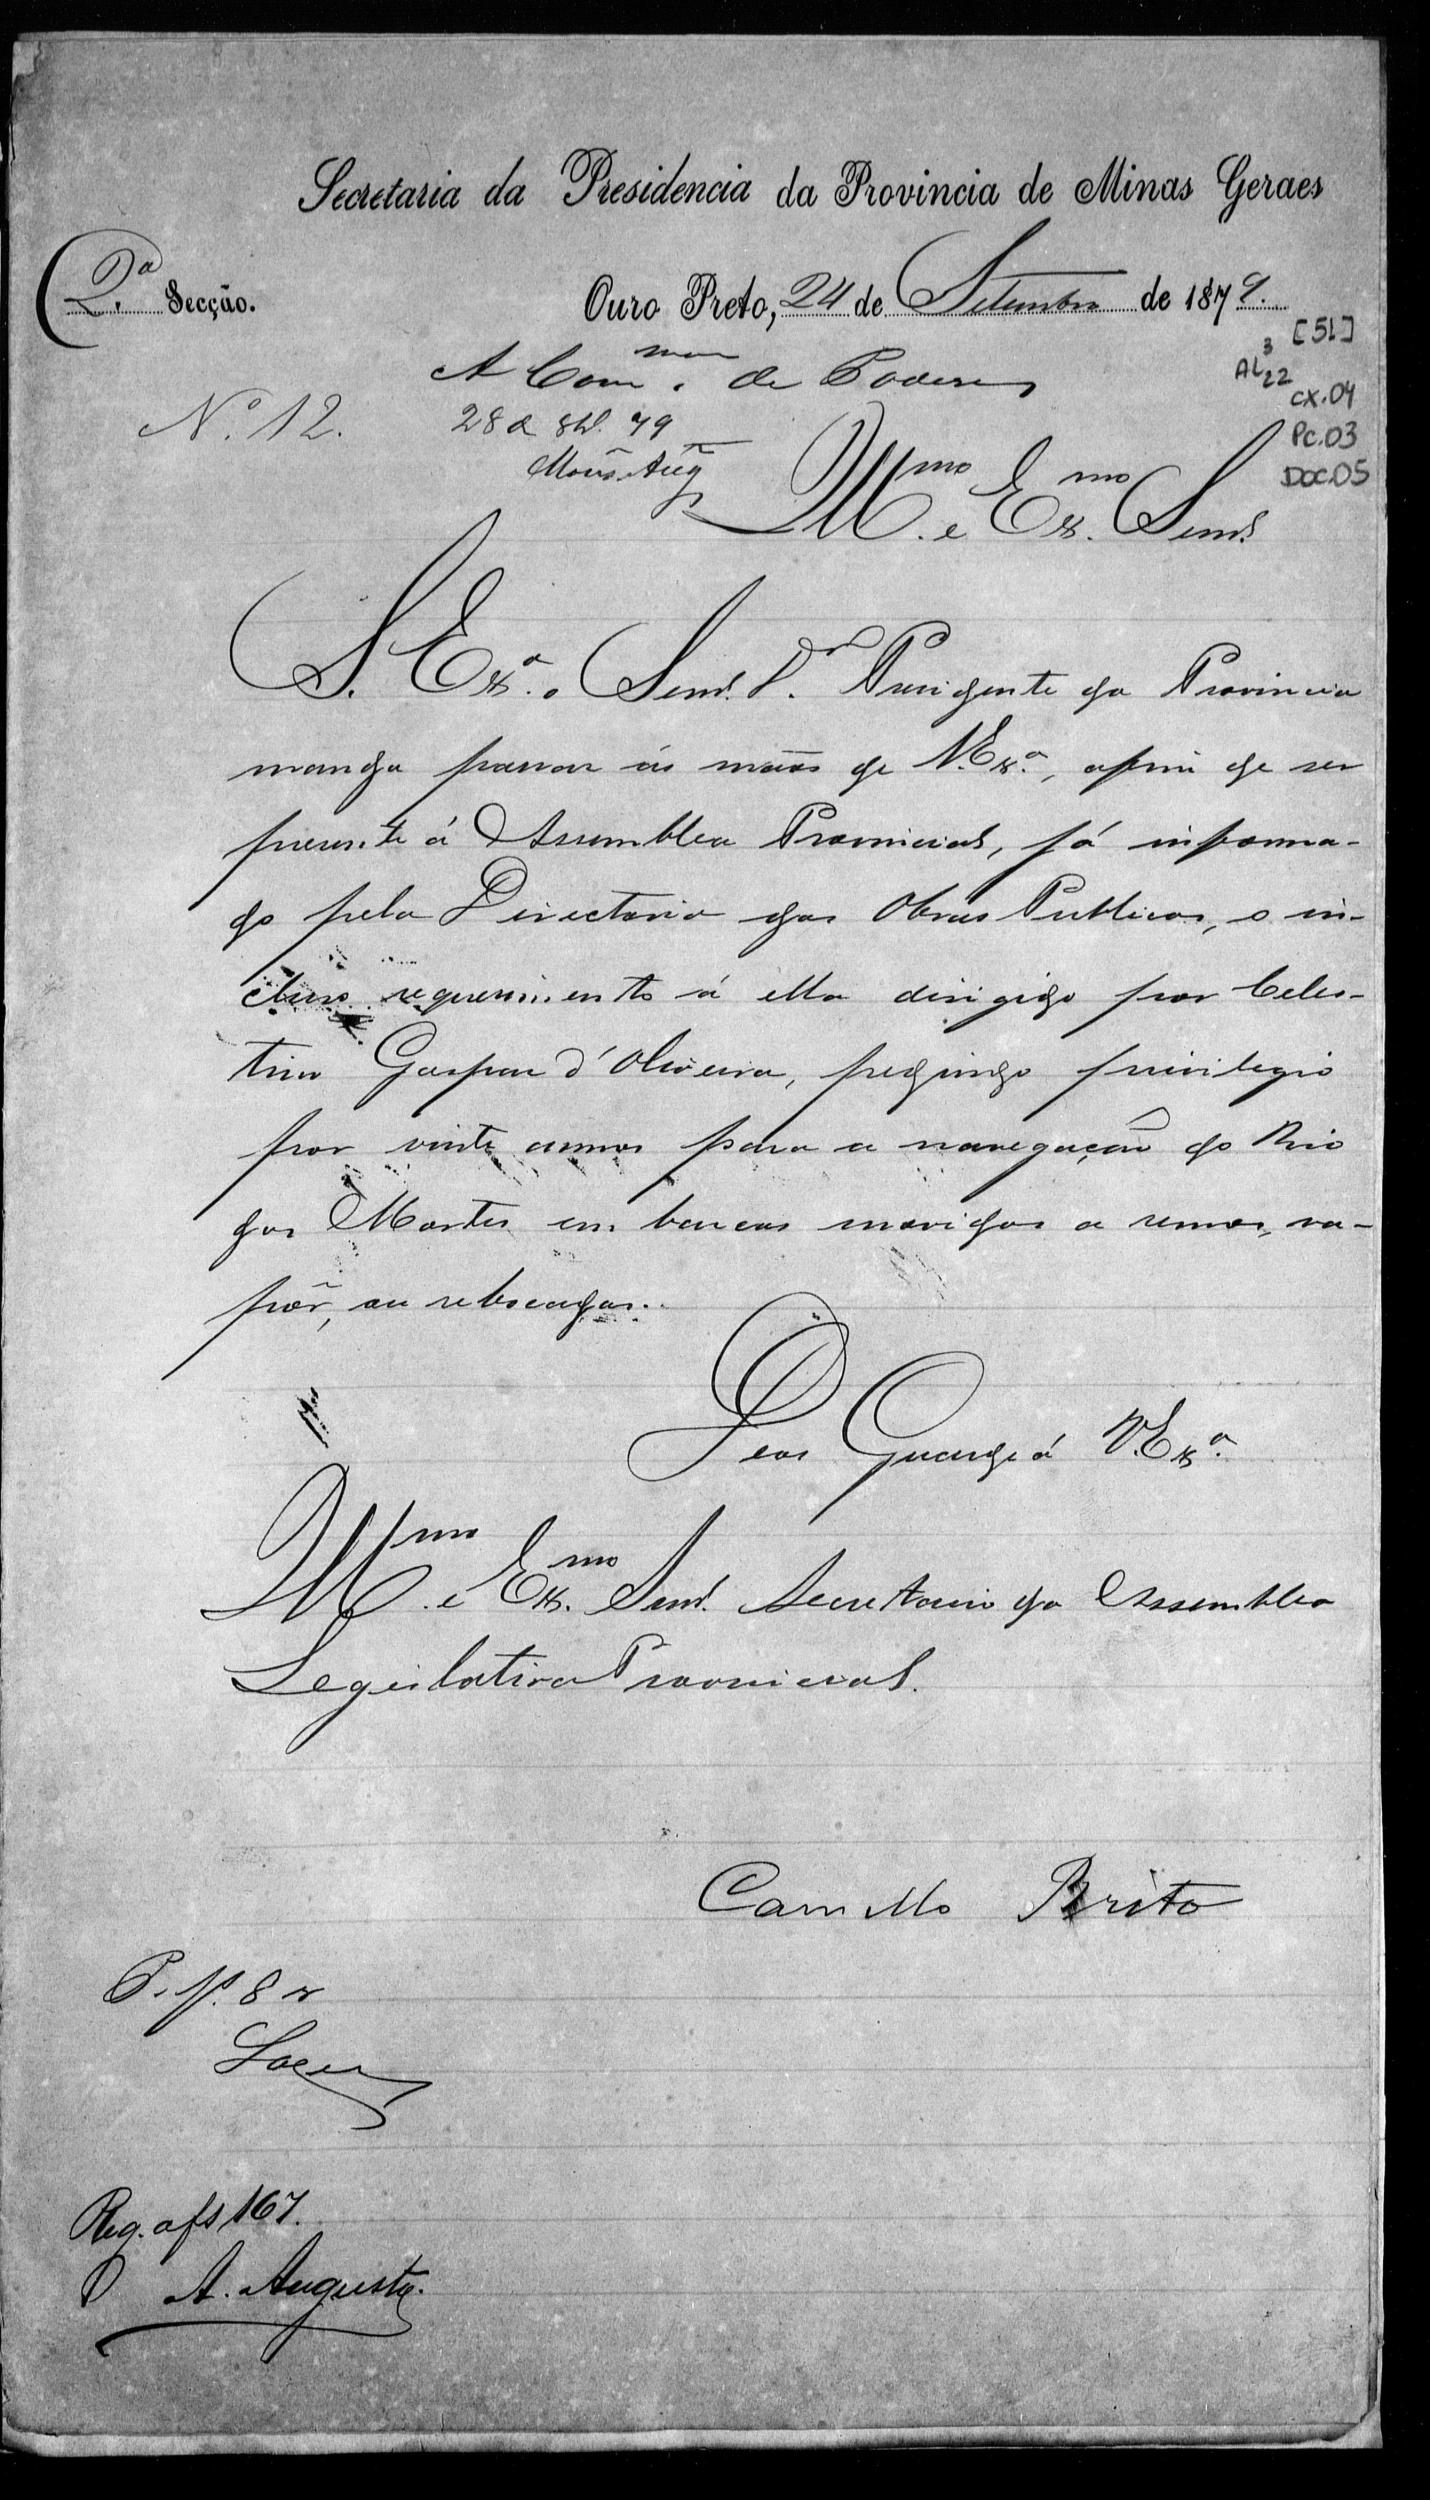 Secretaria da Presidencia da Provincia de Minas Geraes
2.ª Secção.
Ouro Preto, 24 de Setembro de 1879.
[51]
AL 3
22
CX.04
PC.03
DOC.05
A Com.mam de Poderes
28 de 79
N.º 12.
Illmo. e Exmo. Senr.
S. Exª. o Senr. Dr. Presidente da Provincia
manda passar ás mãos de V. Exª., afim de ser
presente á Assemblea Provincial, já informa-
do pela Directoria das Obras Publicas, o in-
cluso requerimento á ella dirigido por Celes-
tino Gaspar d'Oliveira, pedindo privilegio
por vinte annos para a navegação do Rio
das Mortes em barcas movidas a remos, va-
pôr, ou rebocadas.
Deos Guarde á V. Exª.
Illmo. e Exmo. Senr. Secretario da Assemblea
Legislativa Provincial.
Camillo Brito
P. p. 8
Reg. a fs 167.
A. Augusto.